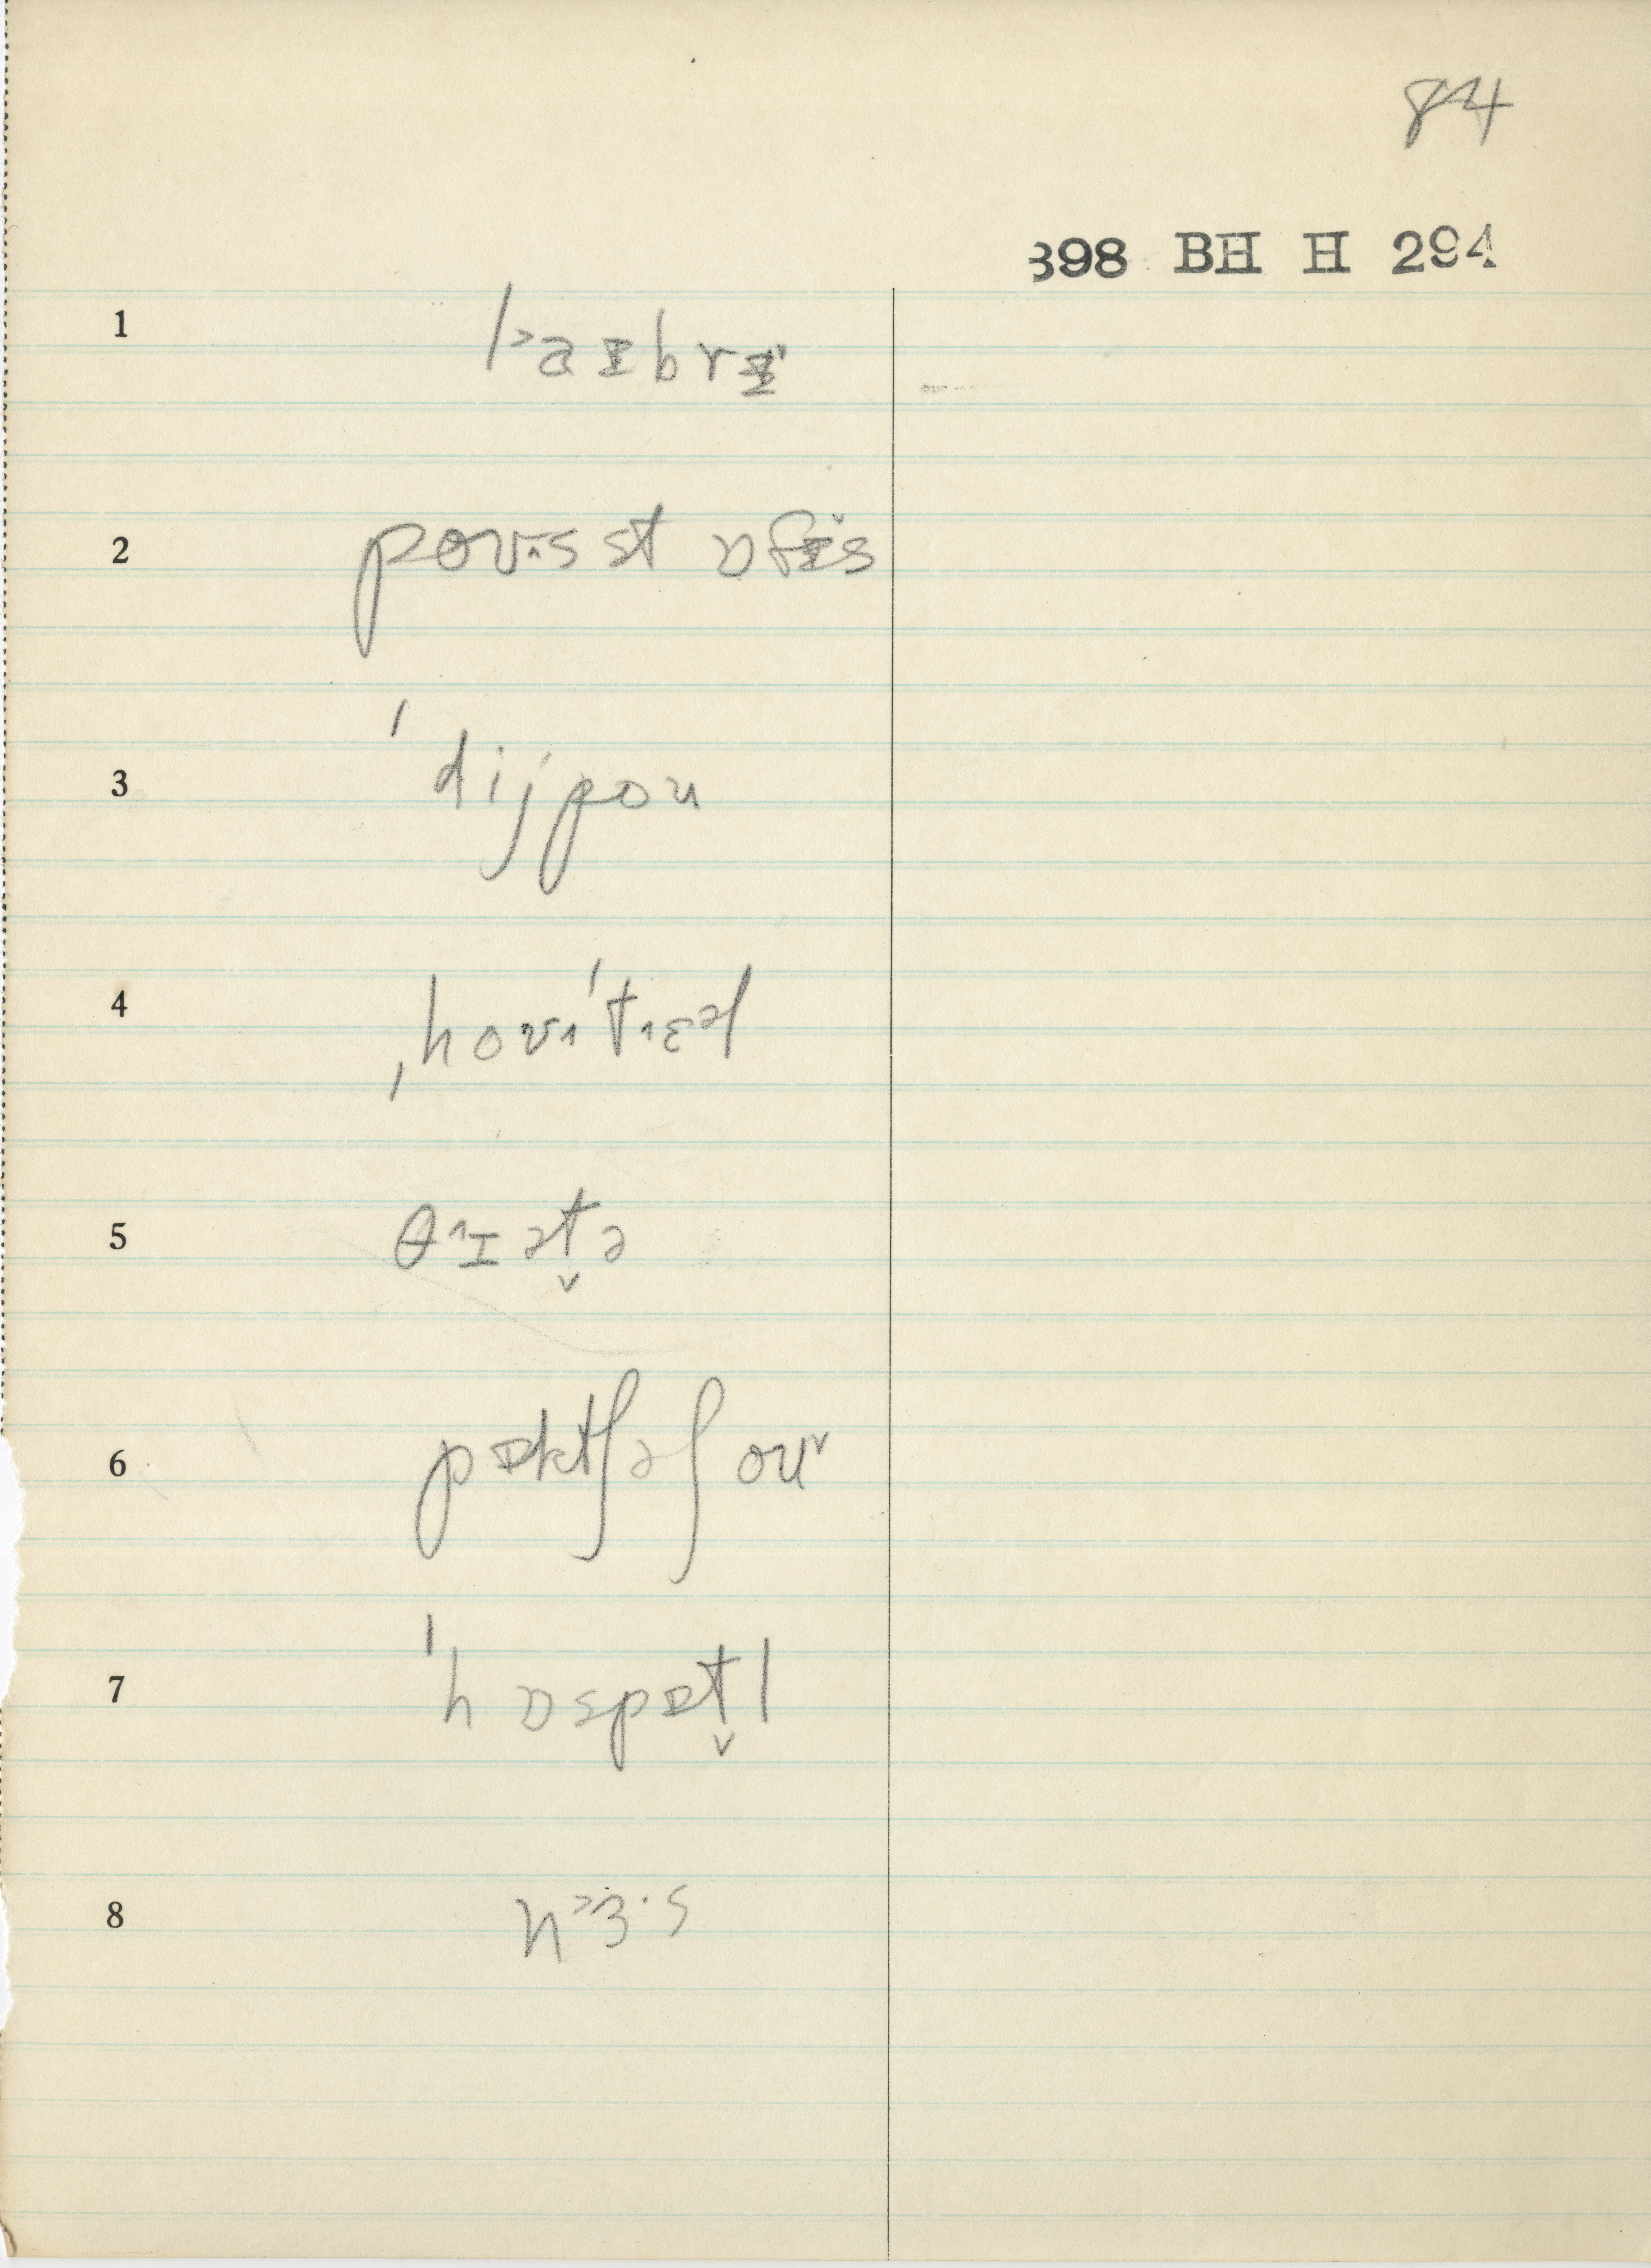 84
398 BH H 294
1 l˃aɪbrɪ̵
2 poʊ˄·s st ɒfɪ̵̌s
3 ˈdijpou
4 ˌhoʊ˄ˈt˄ɛəl
5 θ˄ɪət̬ə
6 pɒktʃəʃ ou˅
7 ˈhɒspɒt̬l
8 n˃ɜ·s